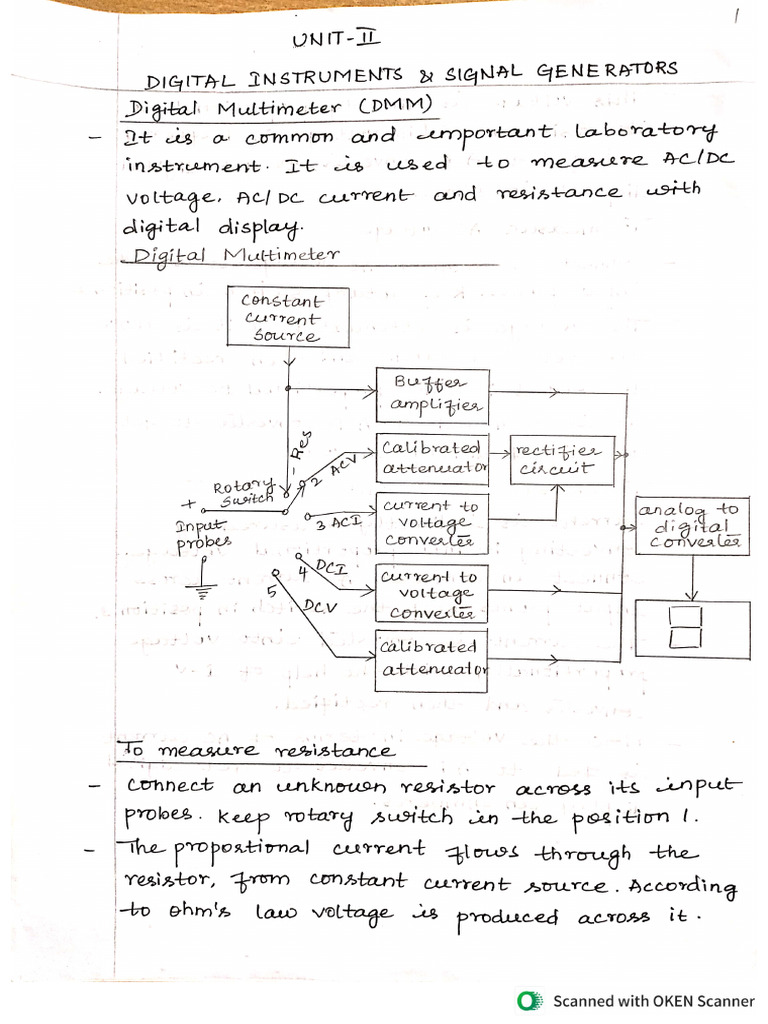 1
UNIT-II
DIGITAL INSTRUMENTS & SIGNAL GENERATORS
Digital Multimeter (DMM)
- It is a common and important laboratory
instrument. It is used to measure AC/DC
voltage, AC/DC current and resistance with
digital display.
Digital Multimeter
constant
current
source
Buffer
amplifier
Res
2 ACV
calibrated
attenuator
rectifier
circuit
Rotary
switch
+
Input
probes
3 ACI
current to
voltage
converter
analog to
digital
converter
4 DCI
5
DCV
current to
voltage
converter
calibrated
attenuator
To measure resistance
- connect an unknown resistor across its input
probes. Keep rotary switch in the position 1.
- The propostional current flows through the
resistor, from constant current source. According
to ohm's law voltage is produced across it.
Scanned with OKEN Scanner